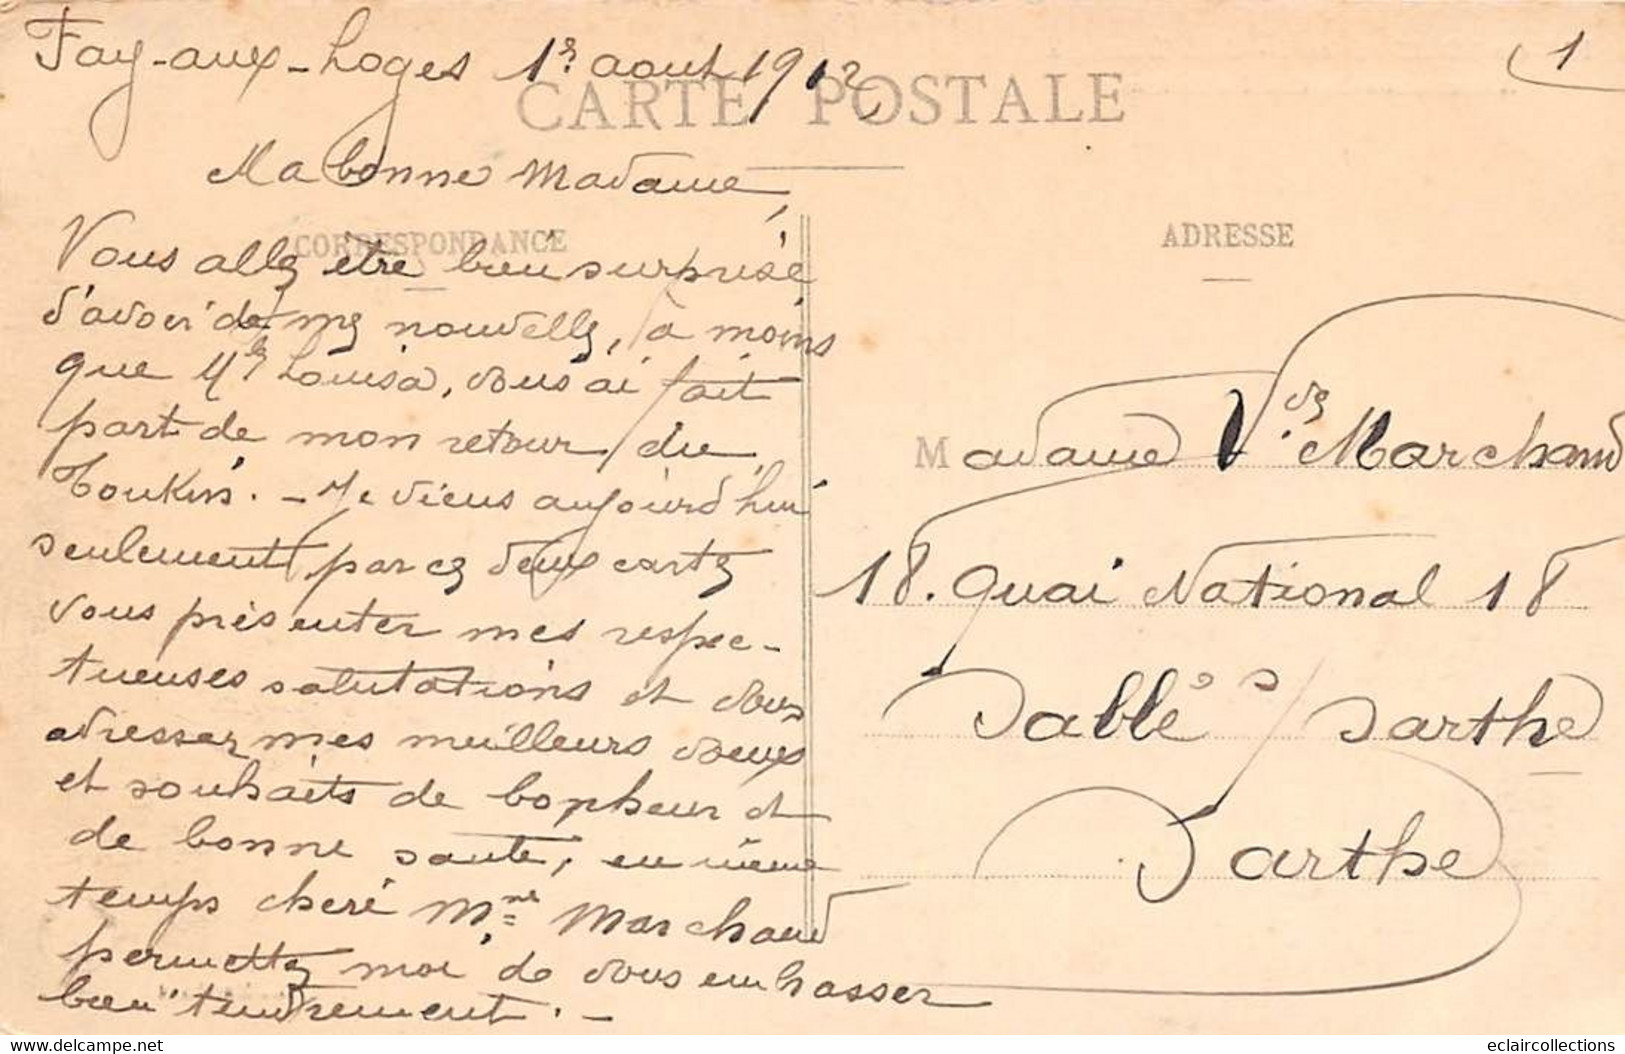 Fay-aux-Loges 1er aout 1912
1
CARTE POSTALE
Ma bonne Madame,
CORRESPONDANCE
Vous allez être bien surprise
d'avoir de mes nouvelles, à moins
que Mlle Louisa, vous ai fait
part de mon retour du
Tonkin. - Je viens aujourd'hui
seulement, par ces deux cartes
vous présenter mes respec-
tueuses salutations et vous
adresser mes meilleurs voeux
et souhaits de bonheur et
de bonne santé, en même
temps cheré Mme Marchand
permettez moi de vous embrasser
bien tendrement. -
ADRESSE
Madame Vve Marchand
18. Quai National 18
Sablé s/ Sarthe
Sarthe
www.delcampe.net
eclaircollections